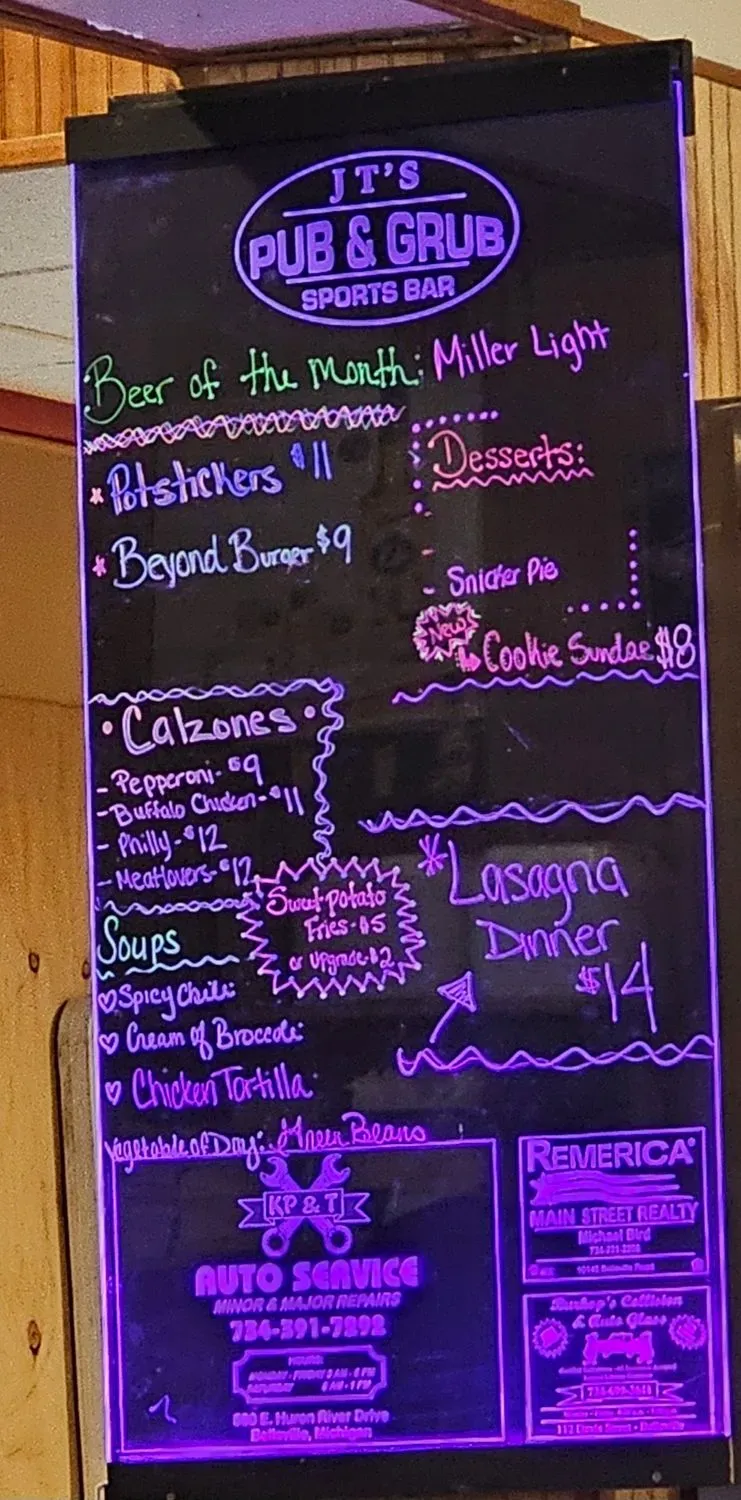 JT'S
PUB & GRUB
SPORTS BAR
Beer of the Month: Miller Light
* Potstickers $11
* Beyond Burger $9
Desserts:
-
-
- Snicker Pie
New!
Cookie Sundae $8
• Calzones •
- Pepperoni - $9
- Buffalo Chicken - $11
- Philly - $12
- Meatlovers - $12
Sweet potato
Fries - $5
or upgrade - $2
* Lasagna
Dinner
$14
Soups
♡ Spicy Chili
♡ Cream of Broccoli
♡ Chicken Tortilla
Vegetable of Day: Green Beans
KP & T
AUTO SERVICE
MINOR & MAJOR REPAIRS
734-391-7292
HOURS:
MONDAY - FRIDAY 8 AM - 6 PM
SATURDAY 8 AM - 1 PM
E. Huron River Drive
Belleville, Michigan
REMERICA
MAIN STREET REALTY
Michael Bird
Belleville Road
Collision
& Auto Glass
Street - Belleville